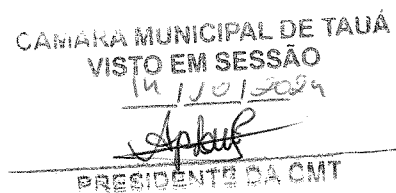 CÂMARA MUNICIPAL DE TAUÁ
VISTO EM SESSÃO
14 / 10 / 2024
PRESIDENTE DA CMT